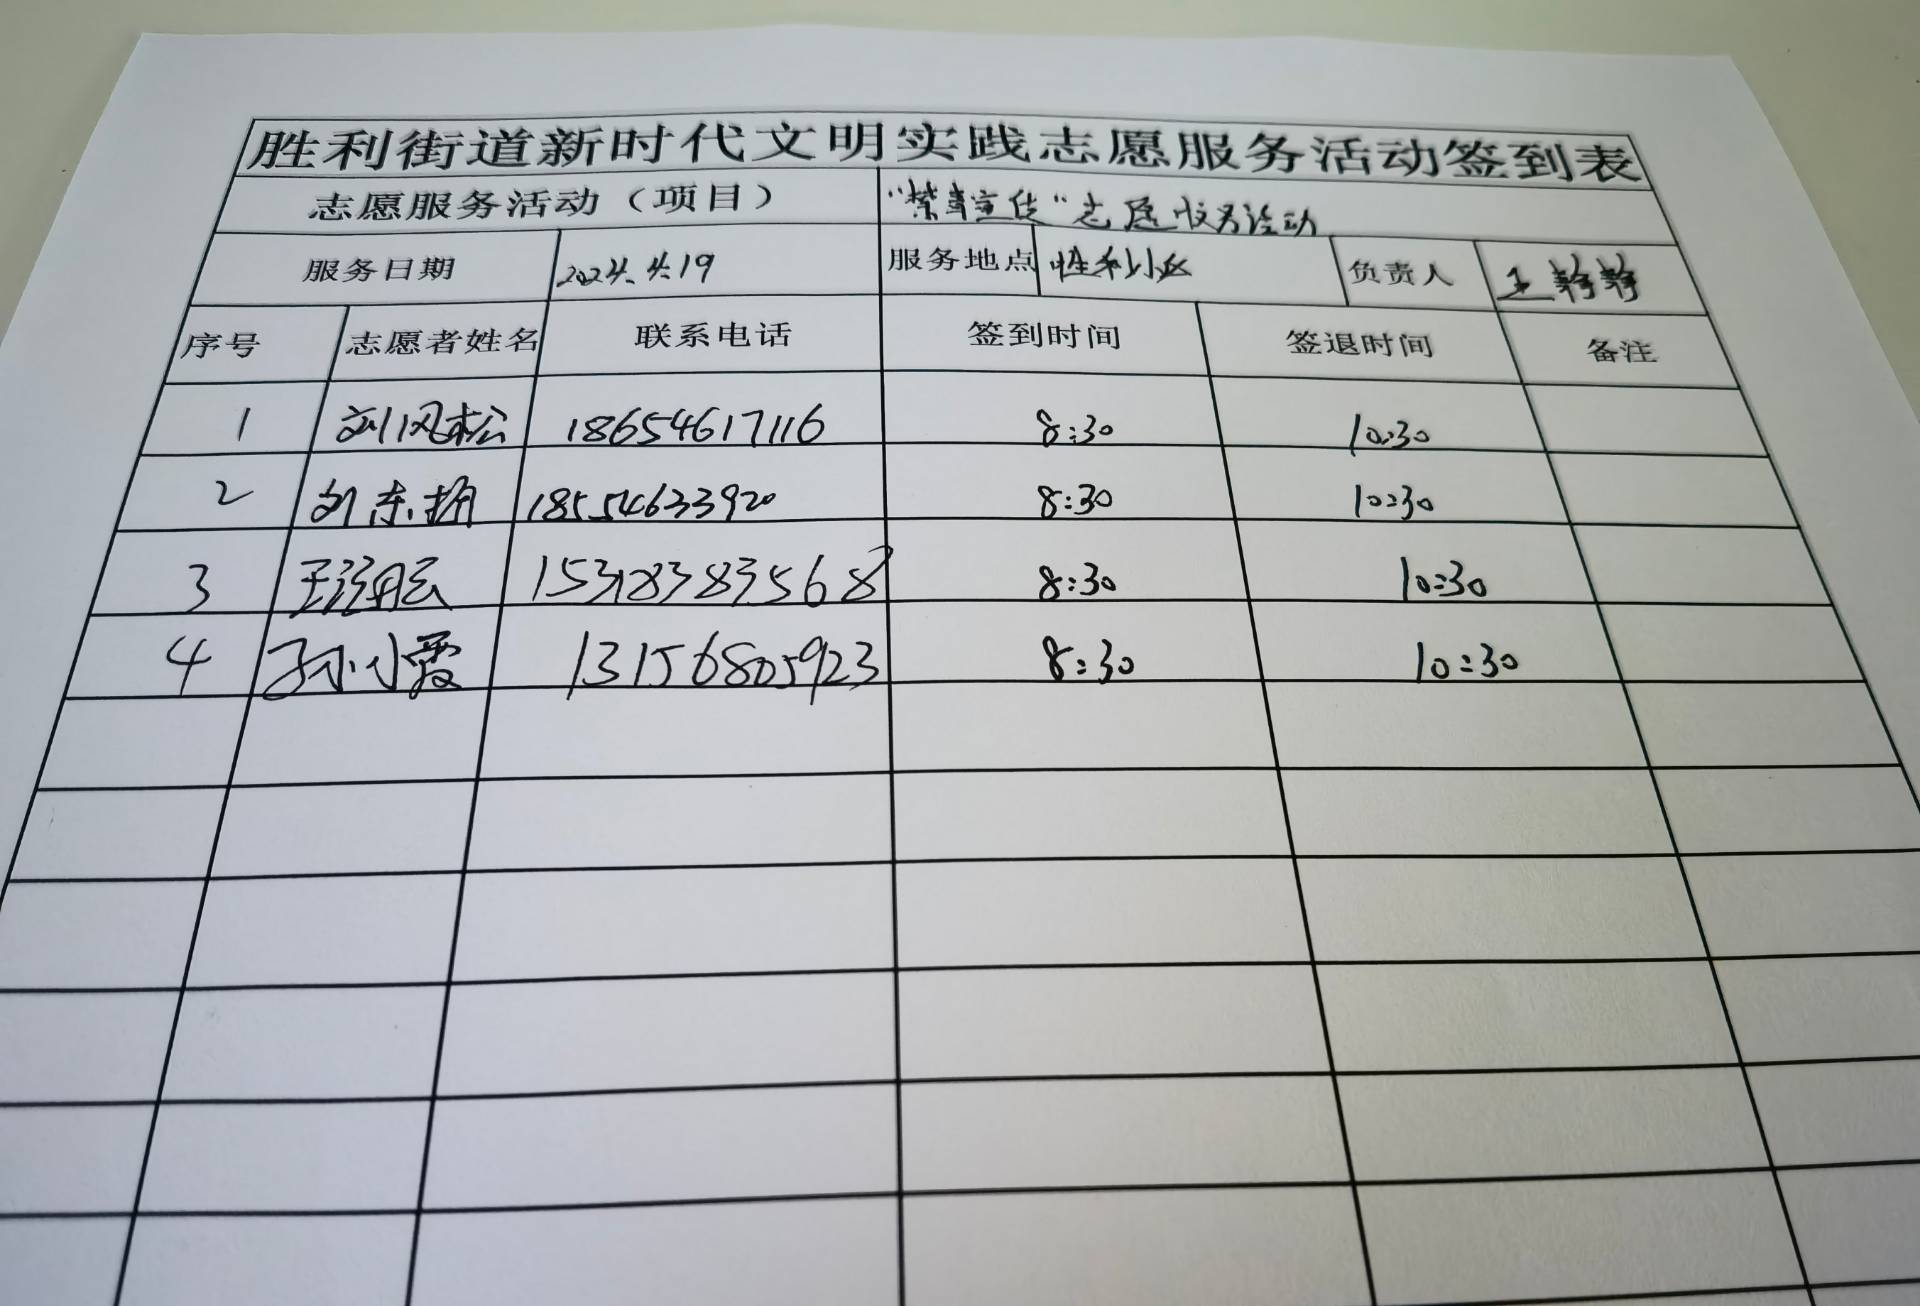 胜利街道新时代文明实践志愿服务活动签到表
志愿服务活动（项目） “禁毒宣传”志愿服务活动
服务日期 2024.4.19 服务地点 胜利小区 负责人 王静静
序号 志愿者姓名 联系电话 签到时间 签退时间 备注
1 刘风松 18654617116 8:30 10:30
2 刘东 18554633920 8:30 10:30
3 王 15318383568 8:30 10:30
4 孙小霞 13156805923 8:30 10:30